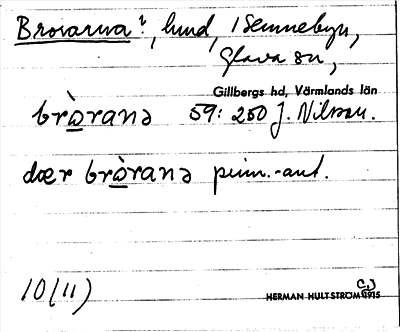 Brovarna?, lund, i Sennebyn,
Glava sn,
Gillbergs hd, Värmlands län
bròrana 59: 250 J. Nilsson.
dær bròrana prim.-ant.
10(11)
HERMAN HULTSTRÖM 1915